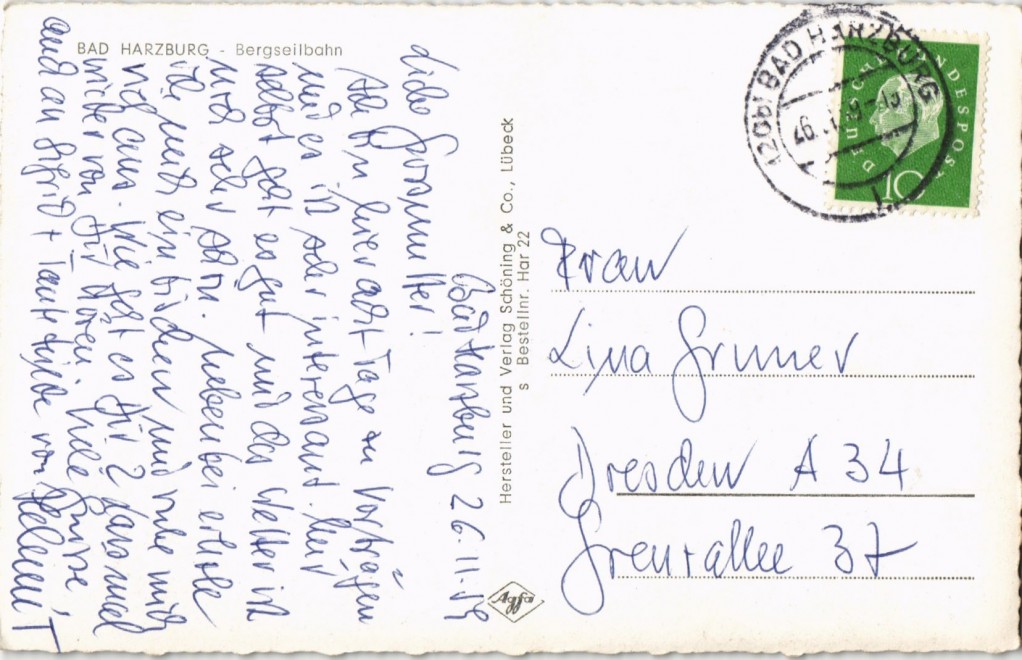 BAD HARZBURG - Bergseilbahn
Bad Harzburg 26.11.59
Liebe Grossmutter!
Ich bin hier acht Tage zu Vorträgen
und es ist sehr interessant. Mir
selbst geht es gut und das Wetter ist
auch sehr schön. Nebenbei erhole
ich mich ein bischen und ruhe mich
richtig aus. Wie geht es Dir? Lass mal
wieder von Dir hören. Viele Grüsse,
auch an Sigrid + Tante von
Helmut
Hersteller und Verlag Schöning & Co., Lübeck
s Bestellnr. Har 22
Agfa
BAD HARZBURG
DEUTSCHE BUNDESPOST
10
Frau
Lina Gruner
Dresden A 34
Grenzallee 37